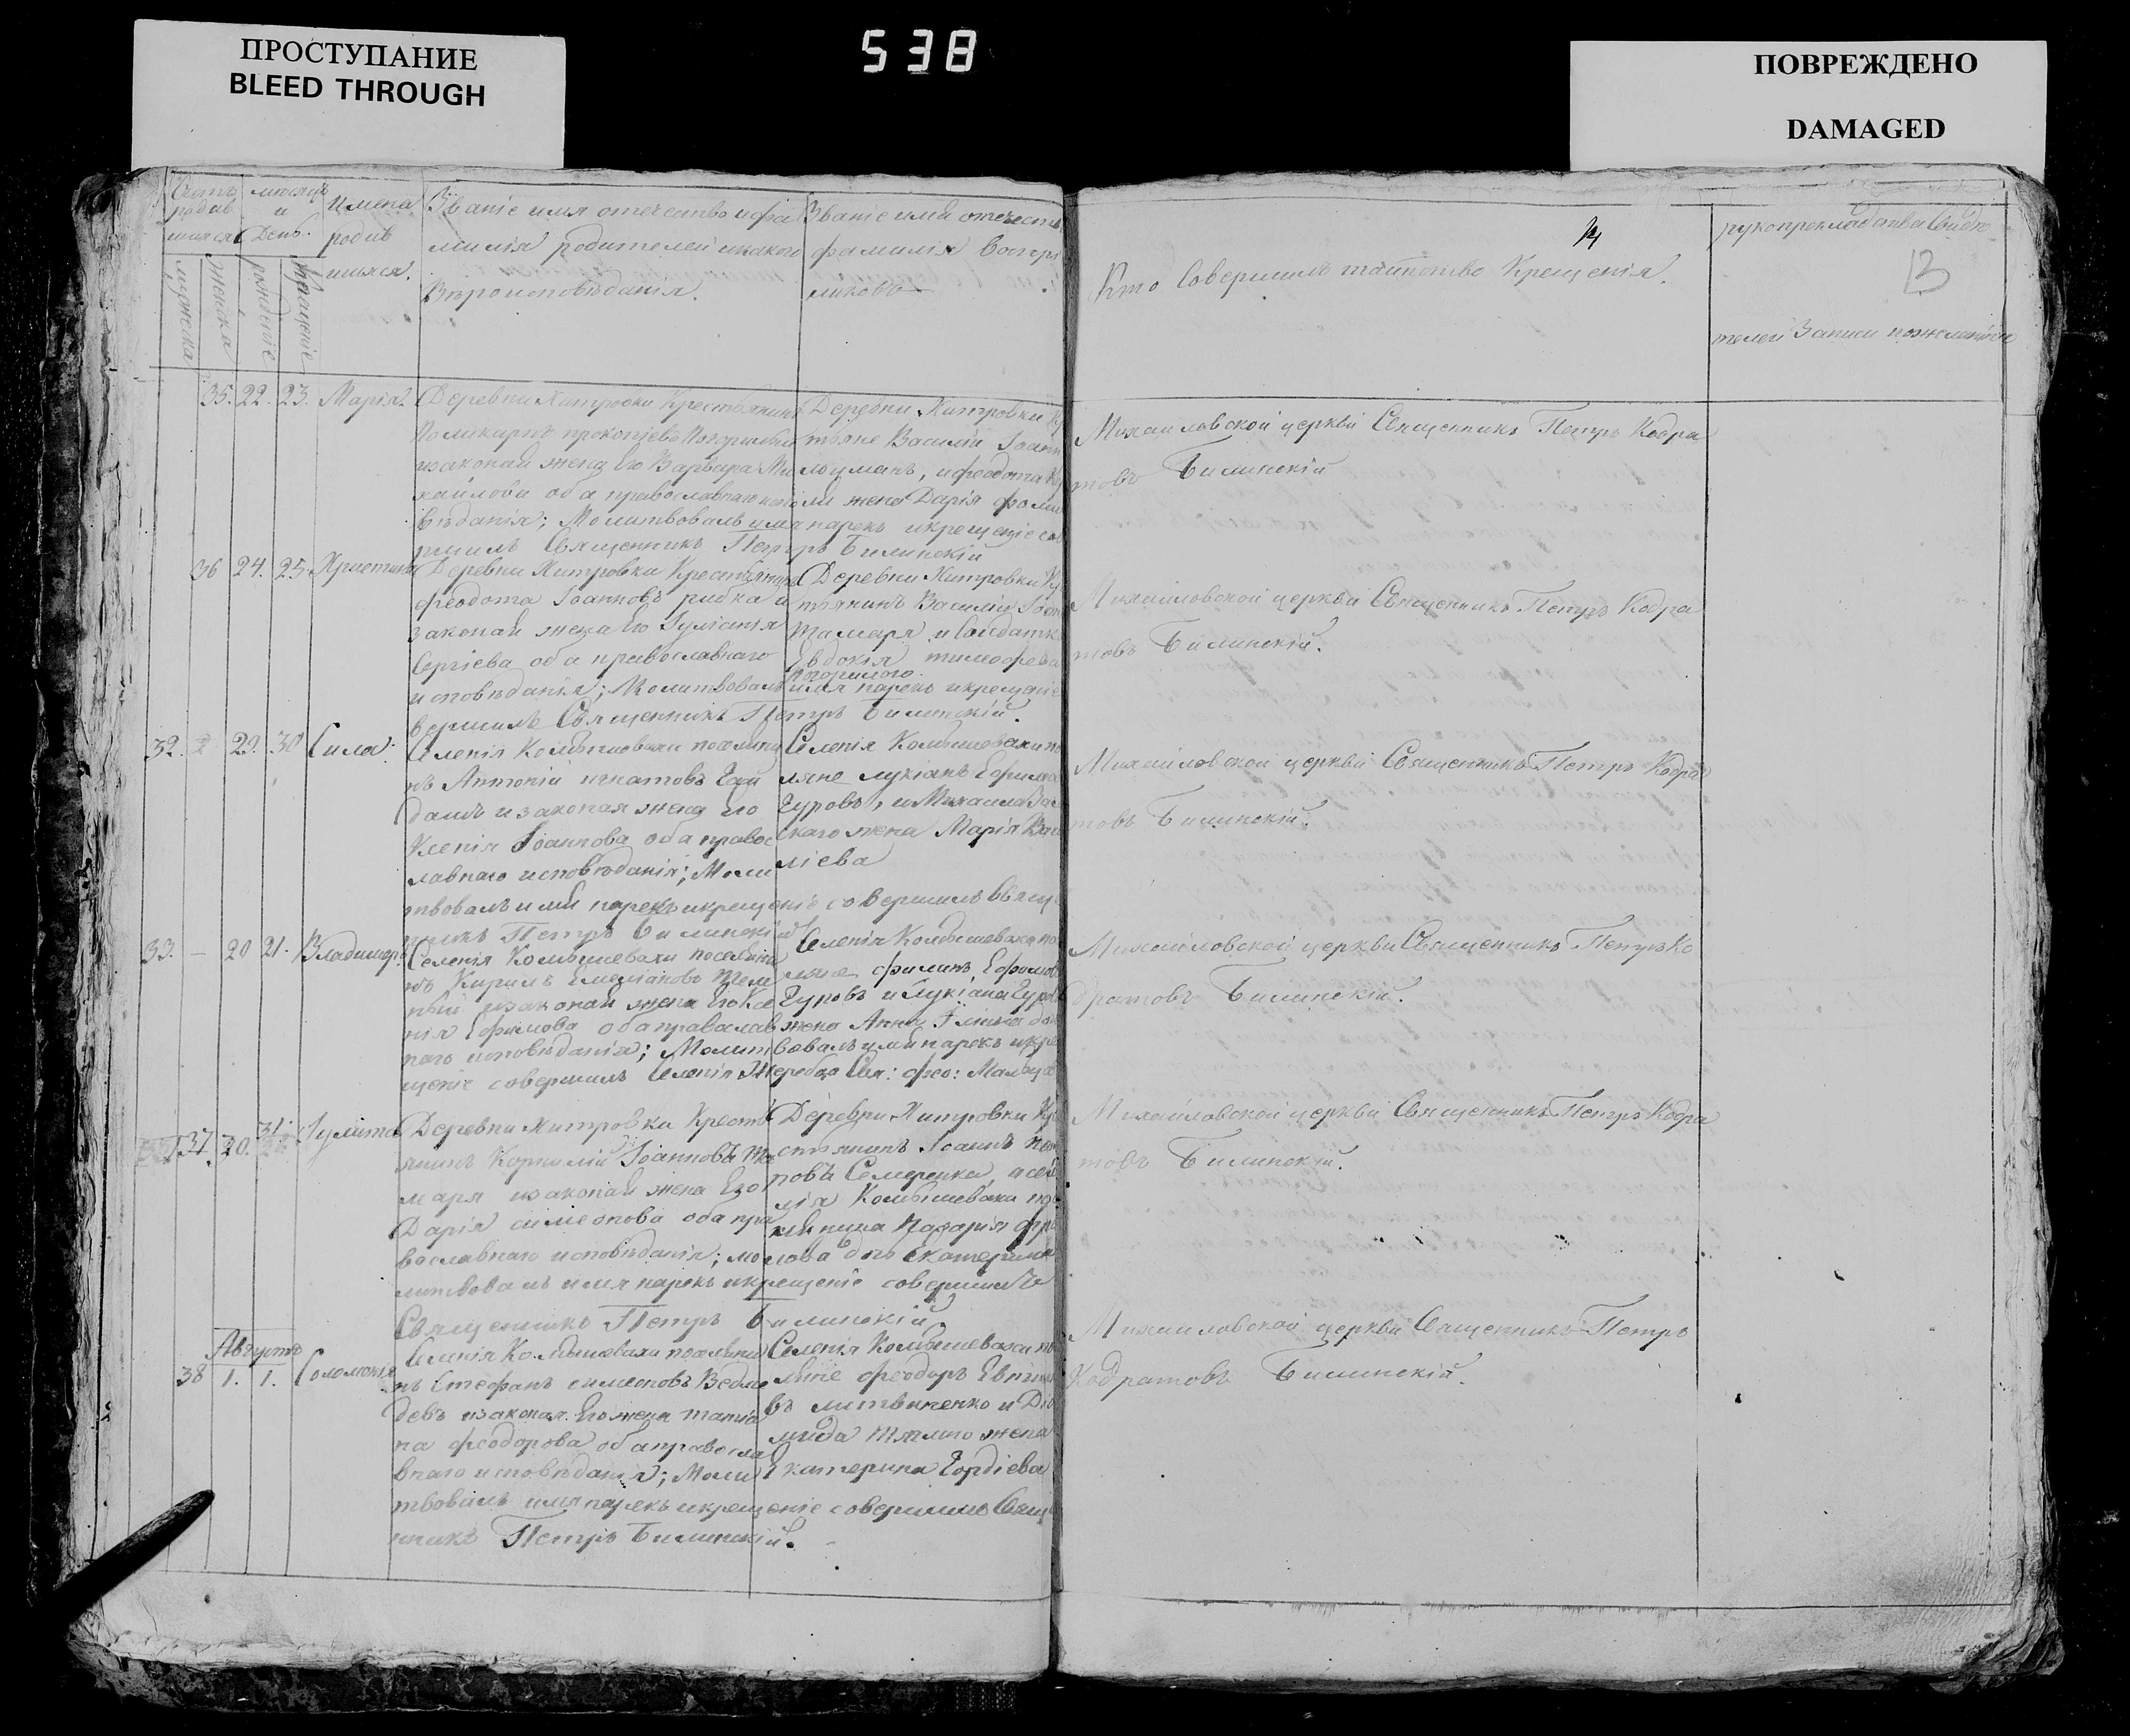 ПРОСТУПАНИЕ
BLEED THROUGH
538
ПОВРЕЖДЕНО
DAMAGED
Счетъ родив шихся
мужеска
женска
мѣсяцъ и День
рожденіе
крещеніе
Имена родив шихся.
Званіе имя отечество и фа
милія родителей и какого
Вѣроисповѣданія.
Званіе имя отечест
фамилія Воспрі
никовъ
14
Кто Совершилъ таинство Крещенія.
рукоприкладства Свидѣ
13
телей Записи по желанію
35. 22. 23. Марія.
Деревни Хитровки Крестьянинъ
Поликарпъ прокопіевъ
изаконая жена Его Варвара Ми
хайлова оба православнаго испо
вѣданія; Молитвовалъ имя нарекъ и крещеніе сов
ршилъ Священникъ Петръ Билинскій
Деревни Хитровки Кр
тьяне Василій Іоанн
и феодота
жена Дарія фоми
Михайловской церкви Священникъ Петръ Кодра
товъ Билинскій
36 24. 25. Христина
Деревни Хитровки Крестьянинъ
феодота Іоанновъ рибка и
законая жена Его Іуліанія
Сергіева оба православнаго
исповѣданія; Молитвовалъ имя нарекъ и крещеніе
вершилъ Священникъ Петръ Билинскій.
Деревни Хитровки Кр
тьянинъ Василій Іоан
Тамаря и Солдатк
Евдокія тимофеева
Погорилого
Михайловской церкви Священникъ Петръ Кодра
товъ Билинскій.
32. 29. 30 Сила.
Селенія Комышевахи поселяни
нъ Антоній игнатовъ Гай
дашъ и законая жена его
Ксенія Іоаннова оба правос
лавнаго исповѣданія; Моли
твовалъ имя нарекъ и крещеніе совершилъ Свящ
никъ Петръ Билинскій
Селенія Комышевахи по
ляне лукіанъ Ефимо
Гуровъ, и Михаила
скаго жена Марія Васи
ліева
Михайловской церкви Священникъ Петръ Кодра
товъ Билинскій.
33. — 20 21. Владимиръ
Селенія Комышевахи поселяни
нъ Кирилъ Емеліановъ Тем
ный изаконая жена Его Ксе
нія Ефимова оба православ
наго исповѣданія; Молитвовалъ имя нарекъ и кре
щеніе совершилъ Селенія Жеребца Свя: фео:
Селенія Комышевахи по
ляне филипъ Ефимов
Гуровъ и Лукіана Гуров
жена Анна
Михайловской церкви Священникъ Петръ Ко
дратовъ Билинскій.
37. 30. 31. Іулита
Деревни Хитровки Крестъ
янинъ Корнилій Іоанновъ Та
маря изаконая жена Его
Дарія симеонова оба пра
вославнаго исповѣданія; мо
литвовалъ имя нарекъ и крещеніе совершилъ
Священникъ Петръ Билинскій
Деревни Хитровки Кр
стьянинъ Іоаннъ пет
ровъ Семеренка, и се
лія Комышевахи по
лянина Назарія
лова дочь Екатерина
Михайловской церкви Священникъ Петръ Кодра
товъ Билинскій.
Августъ
38 1. 1. Соломонія
Селенія Комышевахи поселяни
нъ Стефанъ симеоновъ Ведме
девъ изаконая Его жена татіа
на феодорова оба правосла
внаго исповѣданія; Моли
твовалъ имя нарекъ и крещеніе совершилъ Свящ
нникъ Петръ Билинскій.
Селенія Комышевахи по
ляне феодоръ
въ литвиненко и Діо
мида жена
Екатерина Гордіева
Михайловской церкви Священникъ Петръ
Кодратовъ Билинскій.